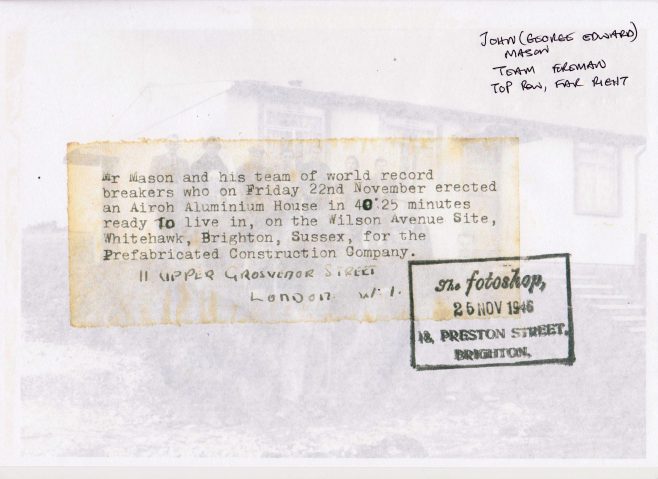 JOHN (GEORGE EDWARD)
MASON
TEAM FOREMAN
TOP ROW, FAR RIGHT
Mr Mason and his team of world record
breakers who on Friday 22nd November erected
an Airoh Aluminium House in 40.25 minutes
ready To live in, on the Wilson Avenue Site,
Whitehawk, Brighton, Sussex, for the
Prefabricated Construction Company.
11 UPPER GROSVENOR STREET
LONDON W.1.
The fotoshop,
25 NOV 1946
18, PRESTON STREET,
BRIGHTON.